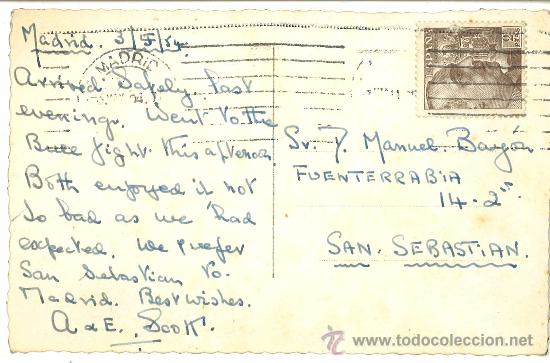 Madrid. 3/5/54.
Arrived Safely last
evening. Went to the
Bull fight this afternoon
Both enjoyed it not
so bad as we had
expected. We prefer
San Sebastian to.
Madrid. Best wishes.
A & E. Scott.
MADRID
ESPAÑA
Sr. J. Manuel
FUENTERRABIA
14-2º
SAN. SEBASTIAN.
www.todocoleccion.net